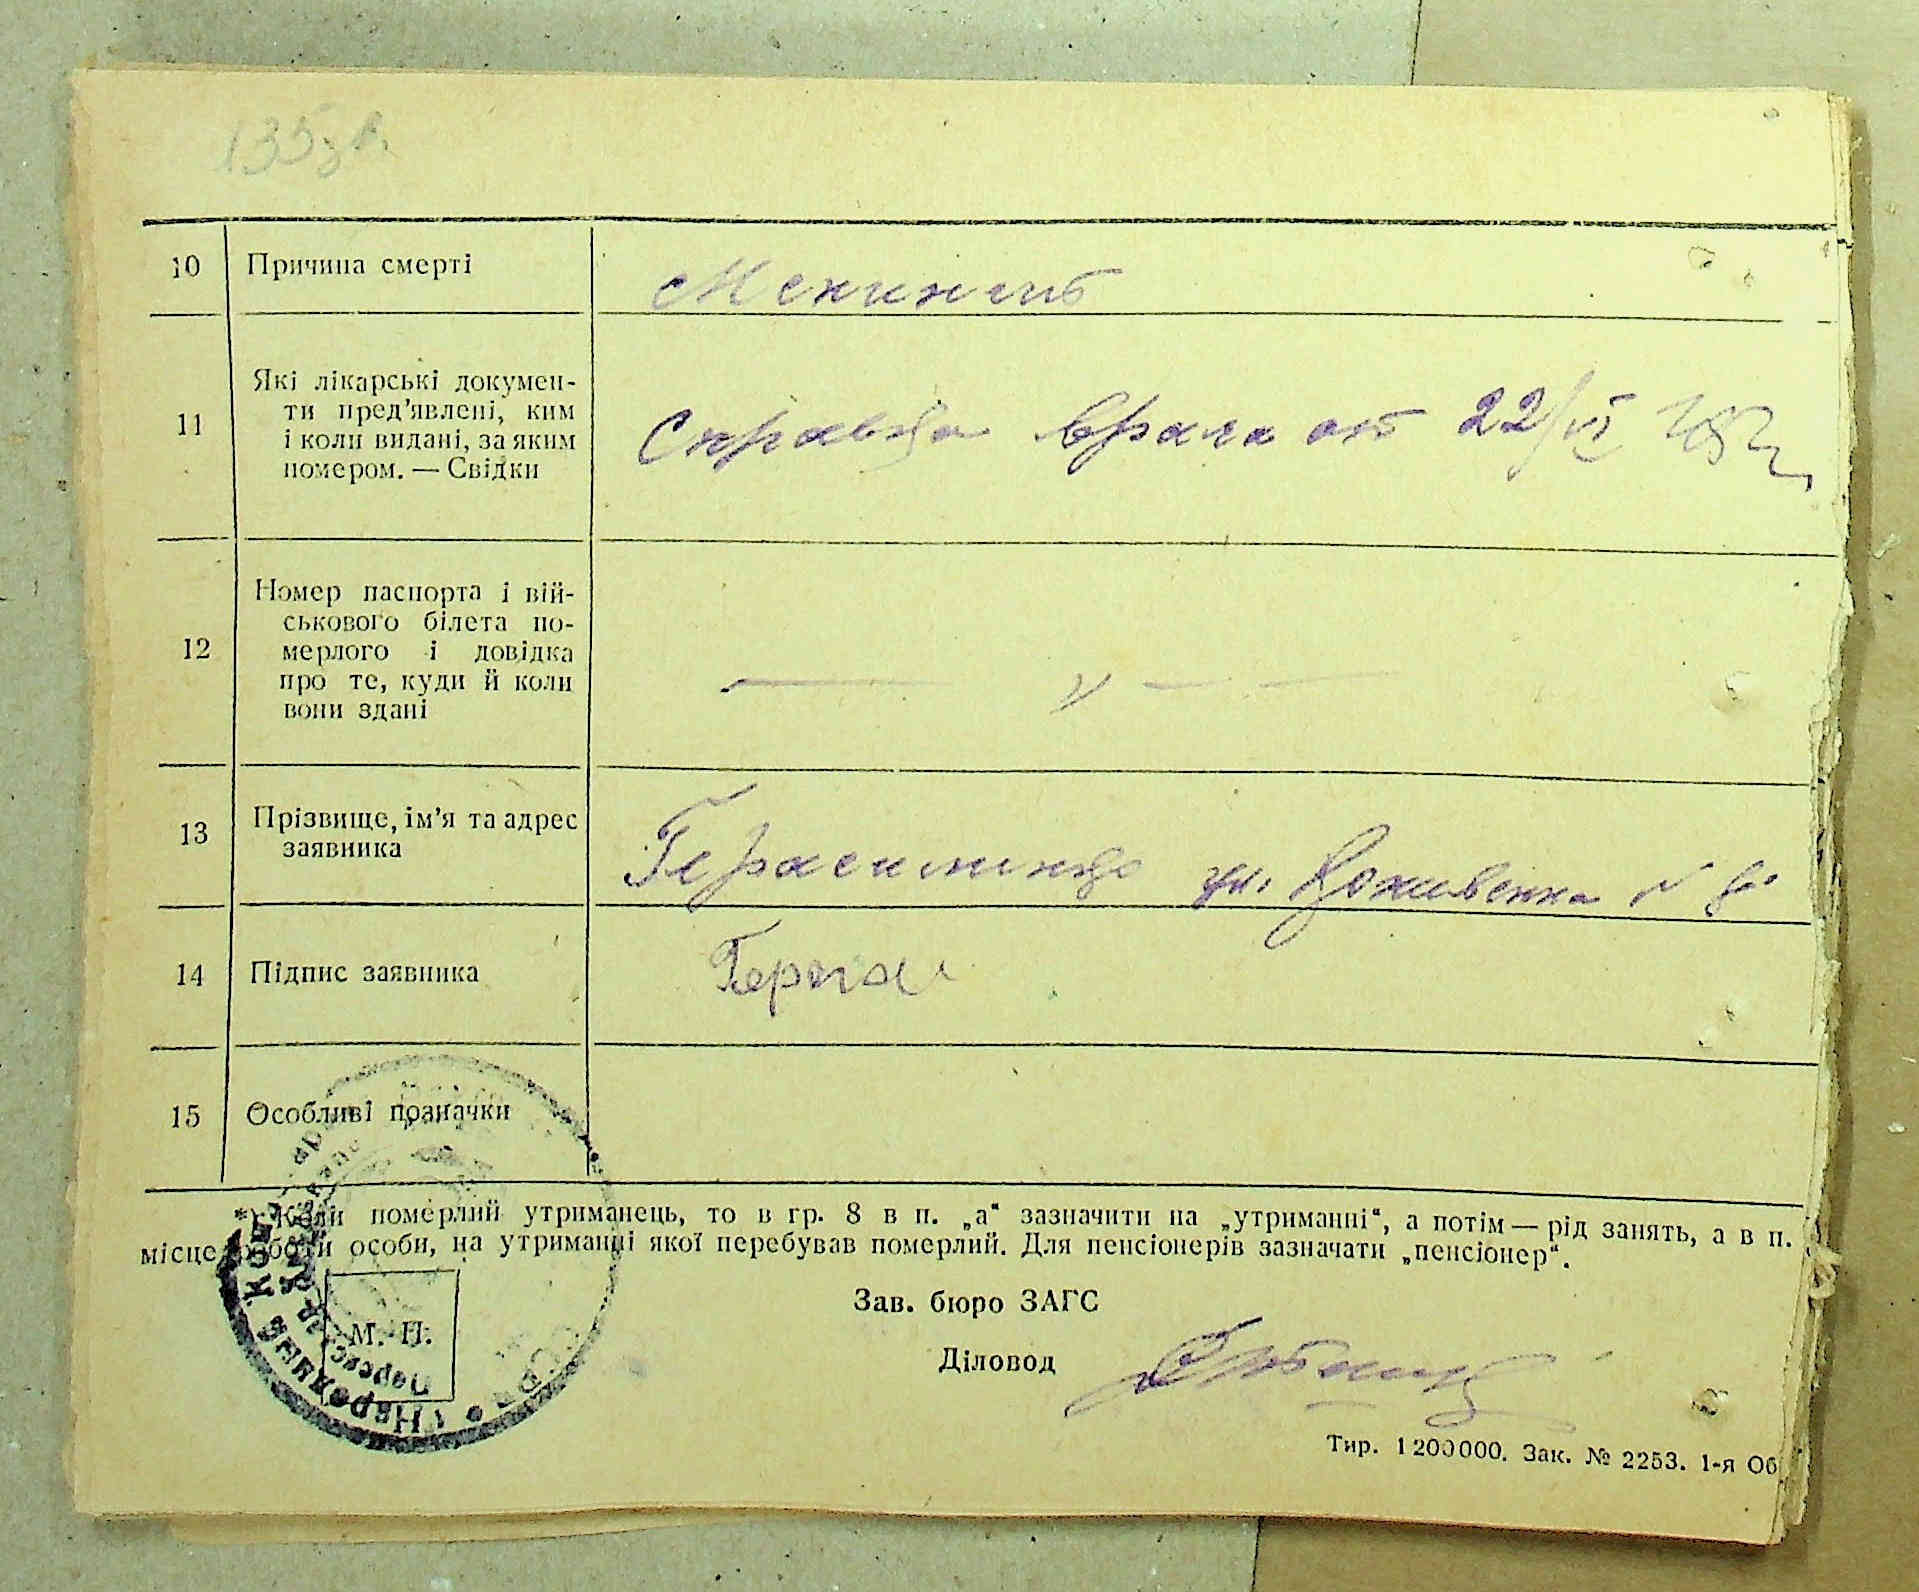 135зв.
10 Причина смерті Менингит
11 Які лікарські докумен-
ти пред'явлені, ким
і коли видані, за яким
номером. — Свідки
Справка врача от 22/VI
12 Номер паспорта і вій-
ськового білета по-
мерлого і довідка
про те, куди й коли
вони здані
— " — —
13 Прізвище, ім'я та адрес
заявника
ул. №
14 Підпис заявника
15 Особливі позначки
*) Коли померлий утриманець, то в гр. 8 в п. „а“ зазначити на „утриманні“, а потім — рід занять, а в п.
місце роботи особи, на утриманні якої перебував померлий. Для пенсіонерів зазначати „пенсіонер“.
Зав. бюро ЗАГС
М. П.
Діловод
Народний Ком
Тир. 1200000. Зак. № 2253. 1-я Об